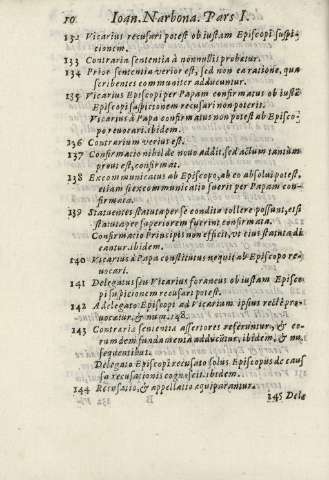 10 Ioan. Narbona. Pars I.
132 Vicarius recusari potest ob iustam Episcopi suspi-
cionem.
133 Contraria sententia à nonnullis probatur.
134 Prior sententia verior est, sed non ea ratione, qua
scribentes communiter adducuntur.
135 Vicarius Episcopi per Papam confirmatus ob iustã
Episcopi suspicionem recusari non poterit.
Vicarius à Papa confirmatus non potest ab Episco-
po reuocari. ibidem.
136 Contrarium verius est.
137 Confirmatio nihil de nouo addit, sed actum tantùm
prout est, confirmat.
138 Excommunicatus ab Episcopo, ab eo absolui potest,
etiam si excommunicatio fuerit per Papam con-
firmata.
139 Statuentes statuta per se condita tollere possunt, etsi
statuta per superiorem fuerint confirmata.
Confirmatio Principis non efficit, vt eius statuta di-
cantur. ibidem.
140 Vicarius à Papa constitutus nequit ab Episcopo re-
uocari.
141 Delegatus seu Vicarius foraneus ob iustam Episco-
pi suspicionem recusari potest.
142 A delegato Episcopi ad Vicarium ipsius rectè pro-
uocatur, & num. 148.
143 Contraria sententia assertores referuntur, & eo-
rum dem fundamenta adducũtur, ibidem, & nu.
sequentibus.
Delegato Episcopi recusato solus Episcopus de caus-
sa recusationis cognoscit. ibidem.
144 Recusatio, & appellatio equiparantur.
145 Dele